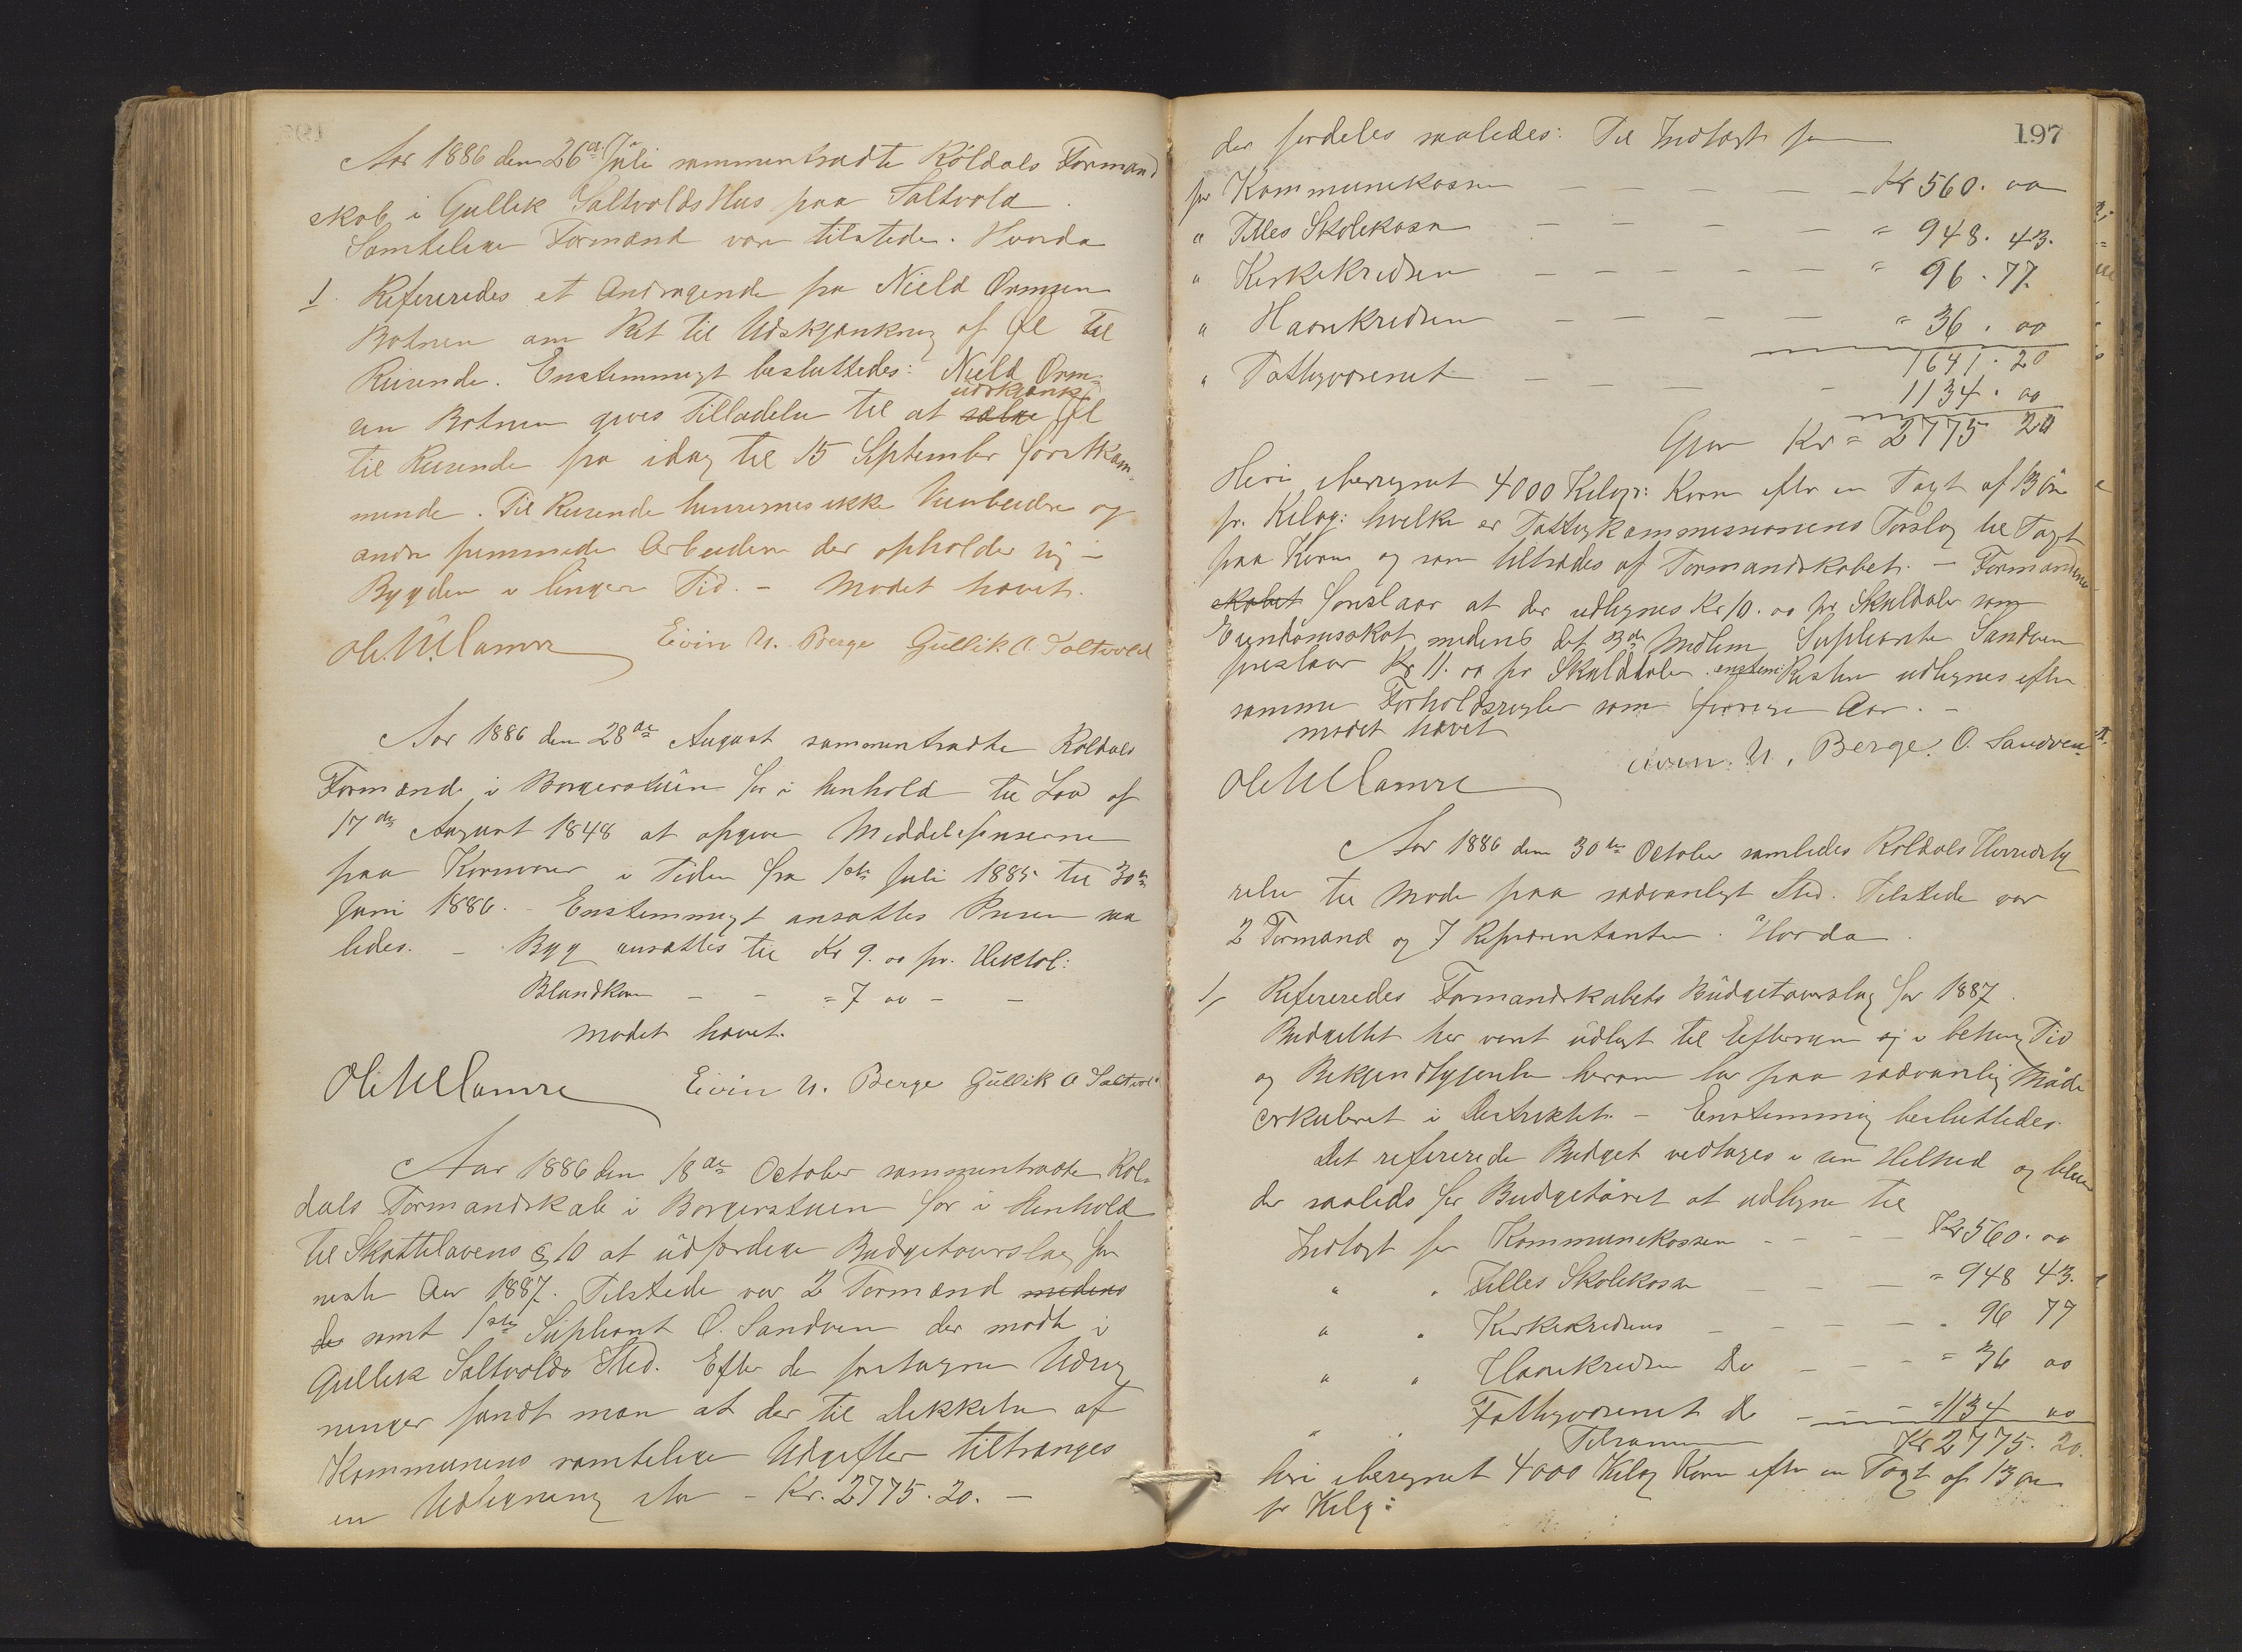 Aar 1886 den 26de Juli sammentraadte Röldals Formand
skab i Gullik Saltvolds Hus paa Saltvold.
Samtelige Formænd var tilstede. Hvorda
1. Refereredes et Andragende fra Nield Ormsen
Botnen om Ret til Udskjænkning af Øl til
Reisende. Enstemmigt besluttedes: Nield Orm-
udskjænke
sen Botnen gives Tilladelse til at sælge Øl
til Reisende fra idag til 15 September førstkom-
mende. Til Reisende henregnes ikke Veiarbeidere og
andre fremmede Arbeidere der opholder sig i
Bygden i længere Tid. - Mødet hævet.
Ole M Hamre Eivin N. Berge Gullik A. Saltvold
Aar 1886 den 28de August sammentraadte Röldals
Formænd i Borgerstuen for i Henhold til Lov af
17de August 1848 at opgive Middelpriserne
paa Kornvarer i Tiden fra 1ste Juli 1885 til 30te
Juni 1886. - Enstemmigt ansattes Prisen saa
ledes. - Byg ansattes til Kr 9.00 pr. Hektol:
Blandkorn - - = 7 00 - -
Mødet hævet.
Ole M Hamre Eivin N. Berge Gullik A Saltvold
Aar 1886 den 18de October sammentraadte Röl-
dals Formandskab i Borgerstuen for i Henhold
til Skattelovens § 10 at udfærdige Budgetoverslag for
neste Aar 1887. Tilstede var 2 Formænd medens
de samt 1ste Supliant O. Sandven der mødte i
Gullik Saltvolds Sted. Efter de foretagne Udreg
ninger fandt man at der til Dekkelse af
Kommunens samtelige Udgifter tiltrænges
en Udligning stor - Kr. 2775.20. -
197
der fordeles saaledes: Til Indtægt for
for Kommunekassen - - - - - Kr 560. 00
" Fælles Skolekasse - - - - - = 948. 43.
" Kirkekredsen - - - - - = 96. 77.
" Havrekredsen - - - - - = 36. 00
1641. 20
" Fattigvæsenet - - - - 1134. 00
Gjør Kr = 2775 20
Heri iberegnet 4000 Kilogr: Korn efter en Taxt af 13 Øre
pr. Kilog: hvilke er Fattigkommissionens Forslag til Taxt
paa Korn og som tiltrædes af Formandskabet. - Formændene
skabet foreslaar at der udlignes Kr 10.00 pr Skylddaler som
Eiendomsskat medens det 3de Medlem Suplianten Sandven
foreslaar Kr 11.00 pr Skylddaler. enstem: Resten udlignes efter
samme Forholdsregler som forrige Aar. -
Mødet hævet
Ole M Hamre Eivin N. Berge. O. Sandven
Aar 1886 den 30te October samledes Röldals Herredsty
relse til Møde paa sædvanligt Sted. Tilstede var
2 Formænd og 7 Repræsentanter. Hvorda.
1, Refereredes Formandskabets Budgetoverslag for 1887.
Budgettet har været udlagt til Eftersyn og i behørig Tid
og Bekjendtgjørelse herom har paa sædvanlig Måde
cirkuleret i Destriktet. - Enstemmig besluttedes.
Det refererede Budget vedtages i sin Helhed og bliver
der saaledes for Budgetåret at udligne til
Indtægt for Kommunekassen - - - - Kr 560. 00
" " Fælles Skolekasse - - - = 948 43.
" " Kirkekredsens - - - - - 96 77
" " Havrekredsen Do - - - = 36 00
" " Fattigvæsenet Do - - - = 1134 00
Tilsammen Kr 2775. 20.
heri iberegnet 4000 Kilog Korn efter en Taxt af 13 øre
pr Kilg: